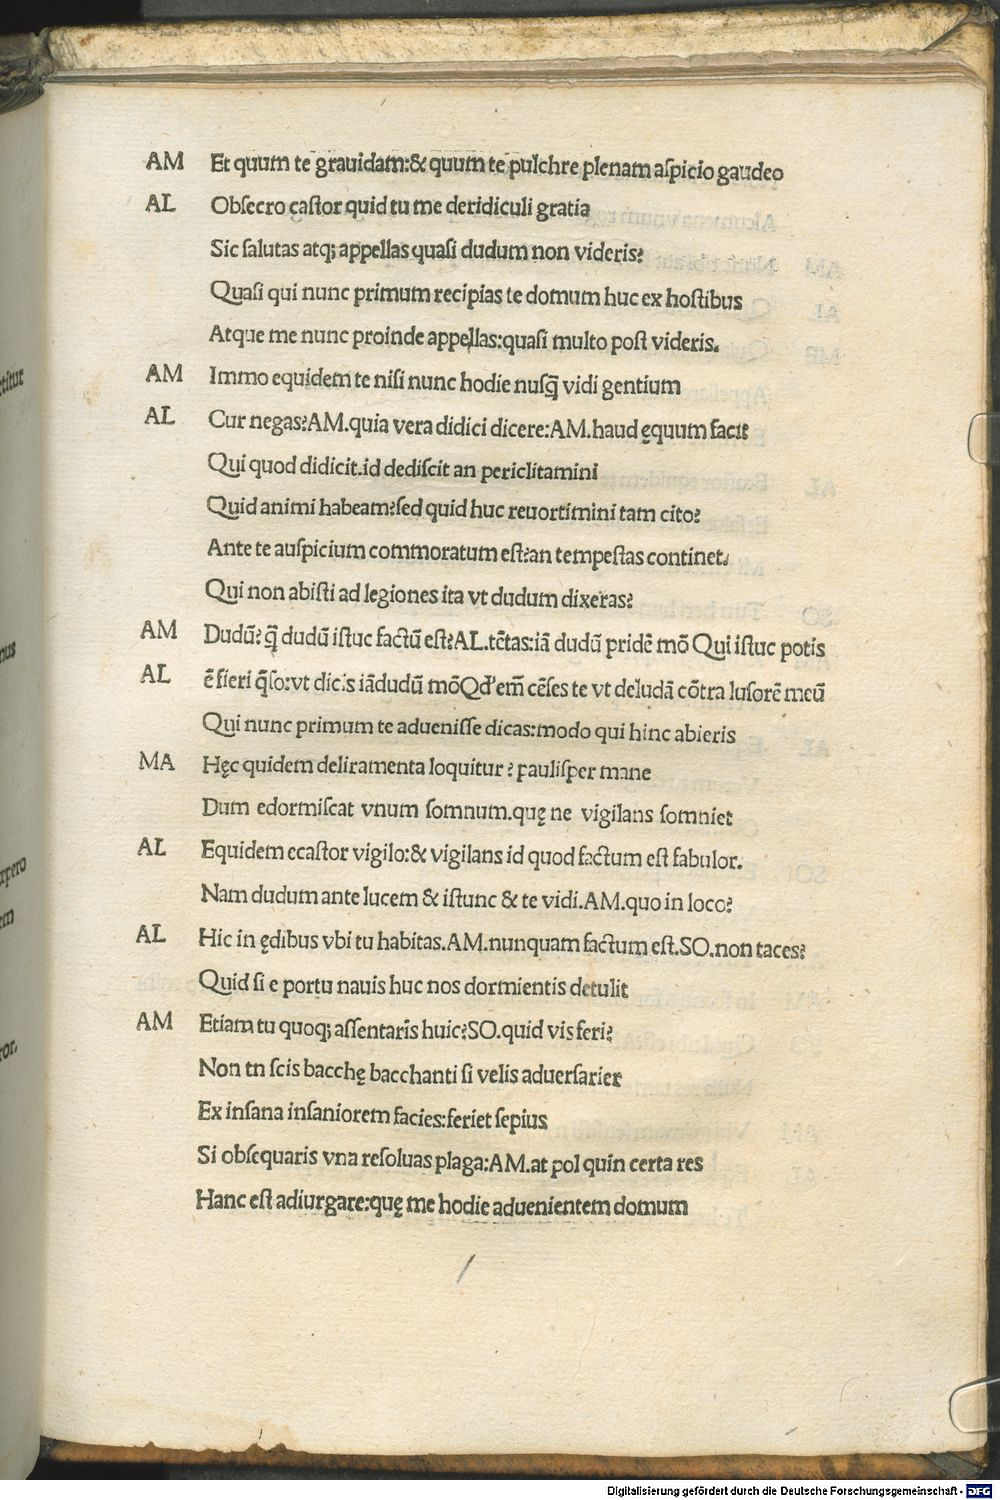 AM Et quum te grauidam:& quum te pulchre plenam aſpicio gaudeo
AL Obſecro caſtor quid tu me deridiculi gratia
Sic ſalutas atq; appellas quaſi dudum non videris?
Quaſi qui nunc primum recipias te domum huc ex hoſtibus
Atque me nunc proinde appellas:quaſi multo poſt videris.
AM Immo equidem te niſi nunc hodie nuſq̄ vidi gentium
AL Cur negas?AM.quia vera didici dicere:AM.haud ęquum facit
Qui quod didicit.id dediſcit an periclitamini
Quid animi habeam?ſed quid huc reuortimini tam cito?
Ante te auſpicium commoratum eſt?an tempeſtas continet.
Qui non abiſti ad legiones ita vt dudum dixeras?
AM Dudū? q̄ dudū iſtuc factū eſt?AL.tētas:iā dudū pridē mō Qui iſtuc potis
AL ē fieri q̄ſo:vt dicis iādudū mō Qd' em̄ cēſes te vt deludā cōtra luſorē meū
Qui nunc primum te adueniſſe dicas:modo qui hinc abieris
MA Hęc quidem deliramenta loquitur? pauliſper mane
Dum edormiſcat vnum ſomnum.quę ne vigilans ſomniet
AL Equidem ecaſtor vigilo:& vigilans id quod factum eſt fabulor.
Nam dudum ante lucem & iſtunc & te vidi.AM.quo in loco?
AL Hic in ędibus vbi tu habitas.AM.nunquam factum eſt.SO.non taces?
Quid ſi e portu nauis huc nos dormientis detulit
AM Etiam tu quoq; aſſentaris huic?SO.quid vis feri?
Non tn ſcis bacchę bacchanti ſi velis aduerſarier
Ex inſana inſaniorem facies:feriet ſepius
Si obſequaris vna reſoluas plaga:AM.at pol quin certa res
Hanc eſt adiurgare:quę me hodie aduenientem domum
Digitalisierung gefördert durch die Deutsche Forschungsgemeinschaft - DFG